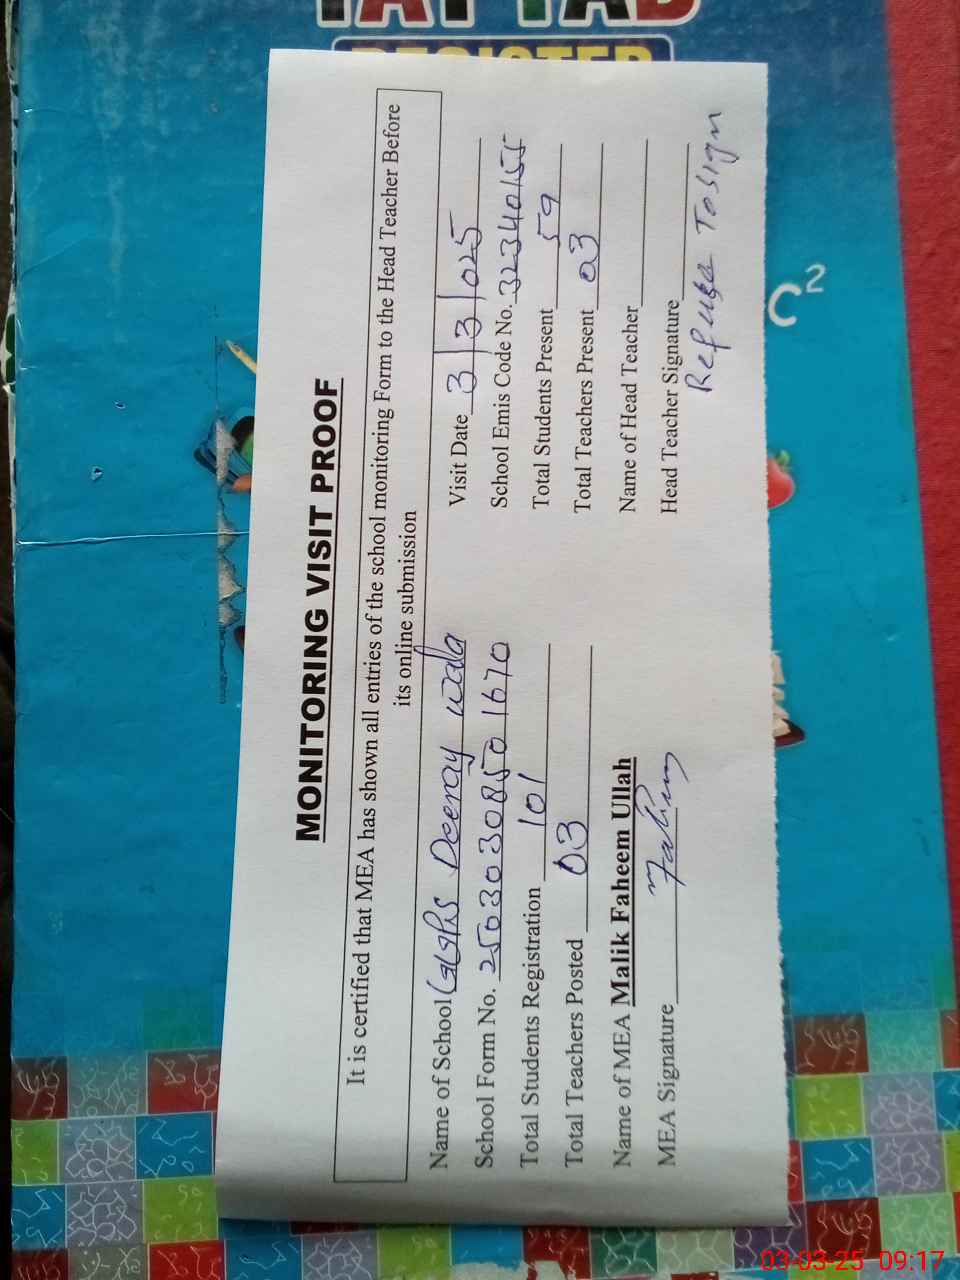 REGISTER
MONITORING VISIT PROOF
It is certified that MEA has shown all entries of the school monitoring Form to the Head Teacher Before
its online submission
Name of School GGPS Deeray wala
Visit Date 3/3/025
School Form No. 25030308501670
School Emis Code No. 32340155
Total Students Registration 101
Total Students Present 59
Total Teachers Posted 03
Total Teachers Present 03
Name of MEA Malik Faheem Ullah
Name of Head Teacher
MEA Signature Fahim
Head Teacher Signature
Refuse To sign
C²
03-03-25 09:17